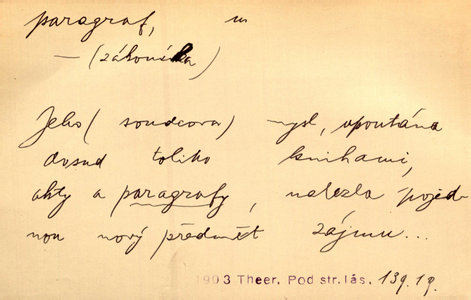 paragraf, m
— (zákoníka)
Jeho (soudcova) mysl, upoutána
dosud toliko knihami,
akty a paragrafy, nalezla pojed
nou nový předmět zájmu...
1903 Theer. Pod str. lás. 139.19.